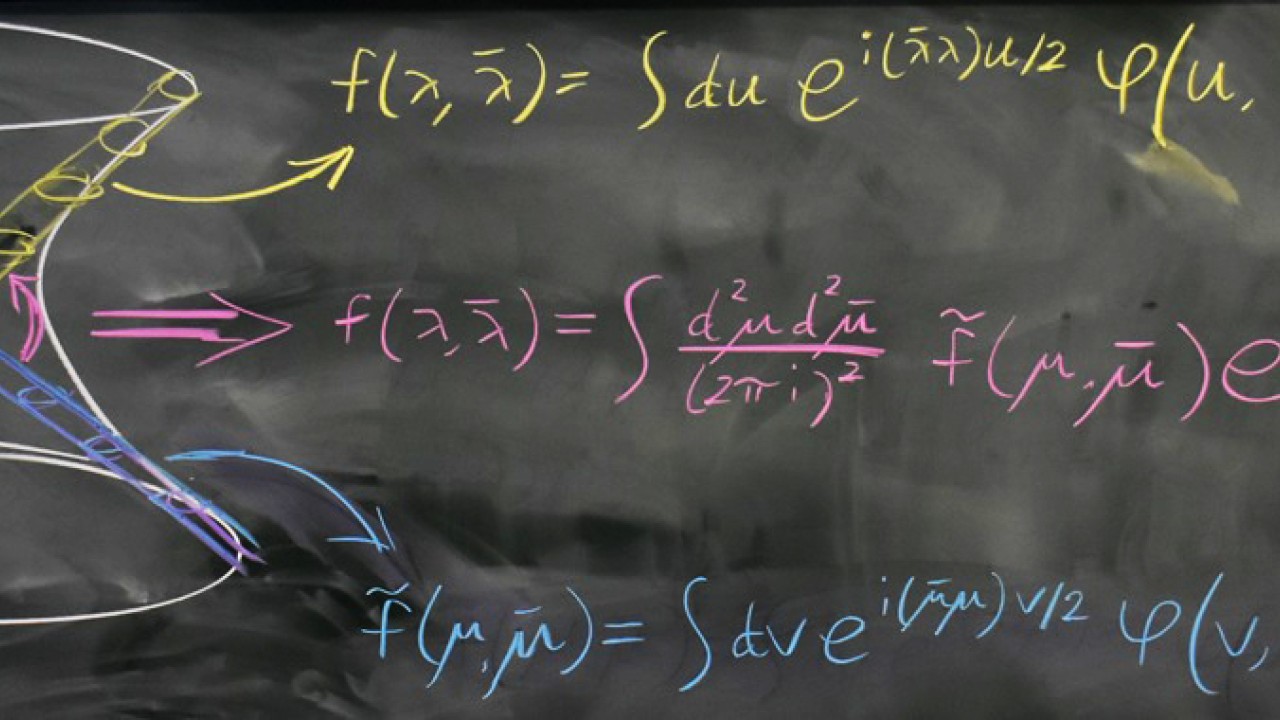 f(λ, λ̄) = ∫ du e^{i(λ̄λ)u/2} φ(u,
f(λ, λ̄) = ∫ d²μ d²μ̄ / (2πi)² f̃(μ, μ̄) e
f̃(μ, μ̄) = ∫ dv e^{i(μ̄μ)v/2} φ(v,